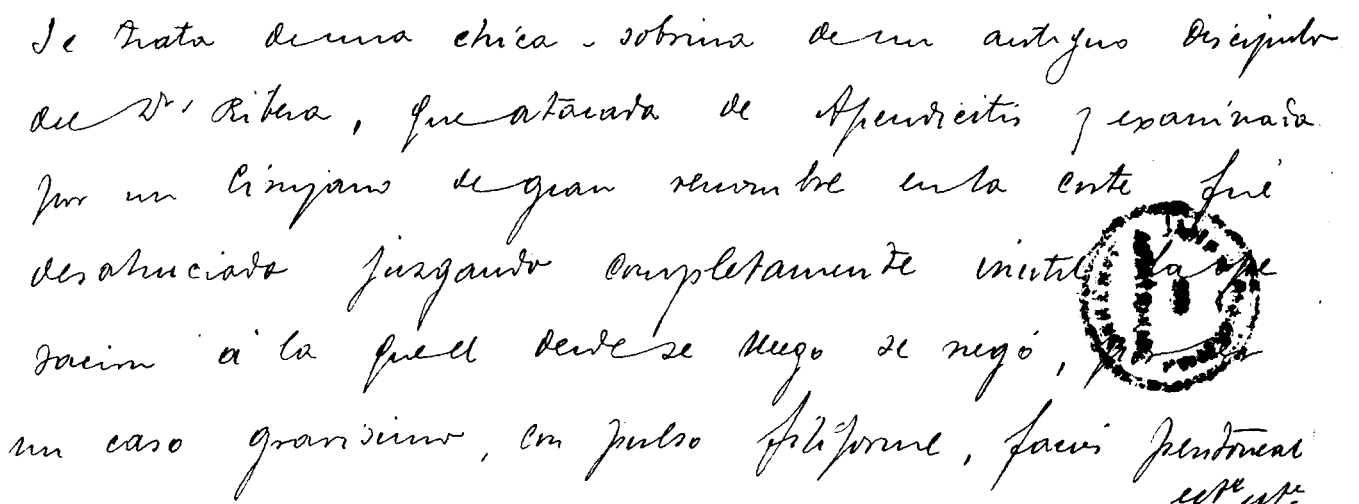 Se trata de una chica - sobrina de un antiguo Discipulo
del Dr. Ribera, que atacada de Apendicitis y examinada
por un Cirujano de gran renombre en la corte fué
desahuciada juzgando completamente inutil la ope
racion á la quel desde se luego se negó, por ser
un caso gravisimo, con pulso filiforme, facies peritoneal